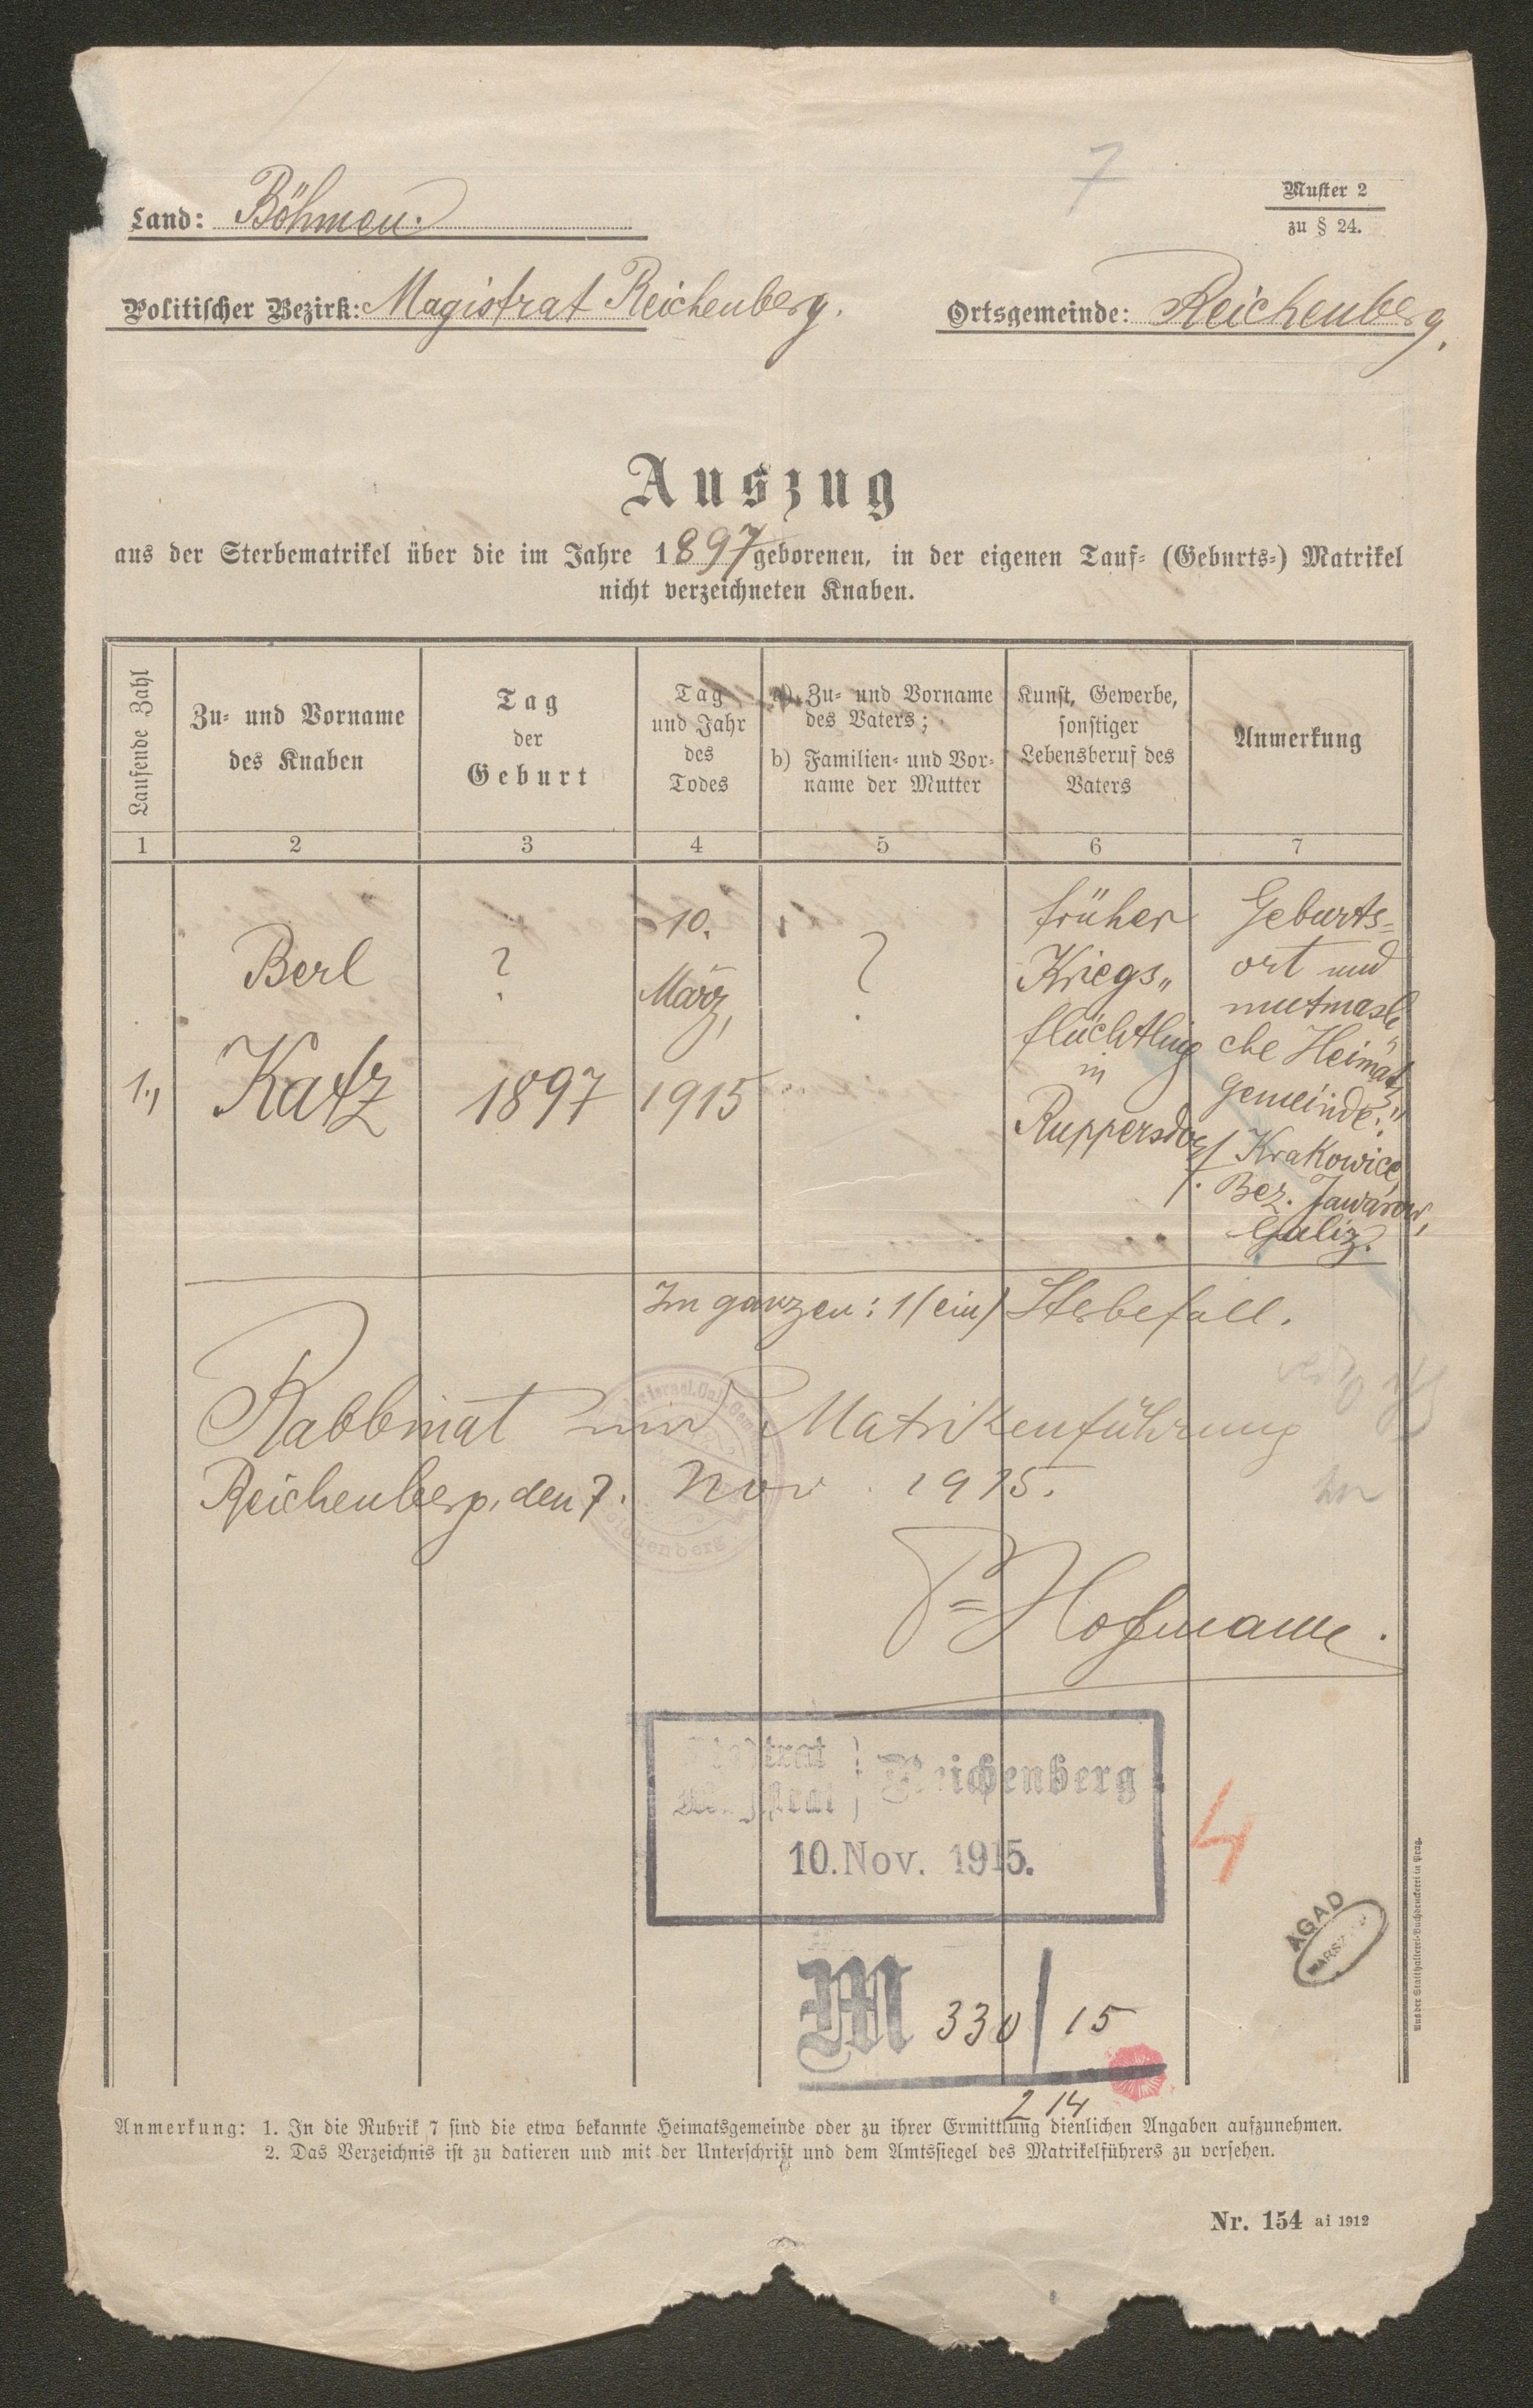 7
Muster 2
zu § 24.
Land: Böhmen.
Politischer Bezirk: Magistrat Reichenberg.
Ortsgemeinde: Reichenberg.
Auszug
aus der Sterbematrikel über die im Jahre 1897 geborenen, in der eigenen Tauf- (Geburts-) Matrikel
nicht verzeichneten Knaben.
Laufende Zahl
Zu- und Vorname
des Knaben
Tag
der
Geburt
Tag
und Jahr
des
Todes
a) Zu- und Vorname
des Vaters;
b) Familien- und Vor-
name der Mutter
Kunst, Gewerbe,
sonstiger
Lebensberuf des
Vaters
Anmerkung
1 2 3 4 5 6 7
1.,
Berl
Katz
?
1897
10.
März,
1915
?
früher
Kriegs„
flüchtling
in
Ruppersdorf.
Geburts=
ort und
mutmasli„
che Heimats„
gemeinde:
Krakowice,
Bez. Jaworow,
Galiz.
Im ganzen: 1 (ein) Sterbefall.
Rabbinat und Matrikenführung
Reichenberg, den 7. Nov. 1915.
Hofmann.
Reichenberg
10. Nov. 1915.
4
AGAD
M 330/15
2 14
Aus der Statthalterei-Buchdruckerei in Prag.
Anmerkung: 1. In die Rubrik 7 sind die etwa bekannte Heimatsgemeinde oder zu ihrer Ermittlung dienlichen Angaben aufzunehmen.
2. Das Verzeichnis ist zu datieren und mit der Unterschrift und dem Amtssiegel des Matrikelführers zu versehen.
Nr. 154 ai 1912